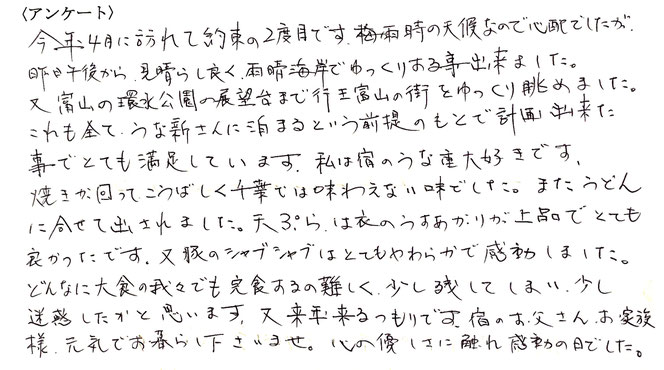 〈アンケート〉
今年4月に訪れて約束の2度目です。梅雨時の天候なので心配でしたが、
昨日午後から、見晴らし良く、雨晴海岸でゆっくりする事出来ました。
又富山の環水公園の展望台まで行き富山の街をゆっくり眺めました。
これも全て、うな新さんに泊まるという前提のもとで計画出来た
事でとても満足しています。私は宿のうな重大好きです。
焼きが回ってこうばしく千葉では味わえない味でした。またうどん
に合せて出されました。天ぷら、は衣のうすあがりが上品でとても
良かったです。又豚のシャブシャブはとてもやわらかで感動しました。
どんなに大食の我々でも完食するの難しく、少し残してしまい、少し
迷惑したかと思います。又来年来るつもりです。宿のお父さん、お家族
様、元気でお暮らし下さいませ。心の優しさに触れ感動の日でした。